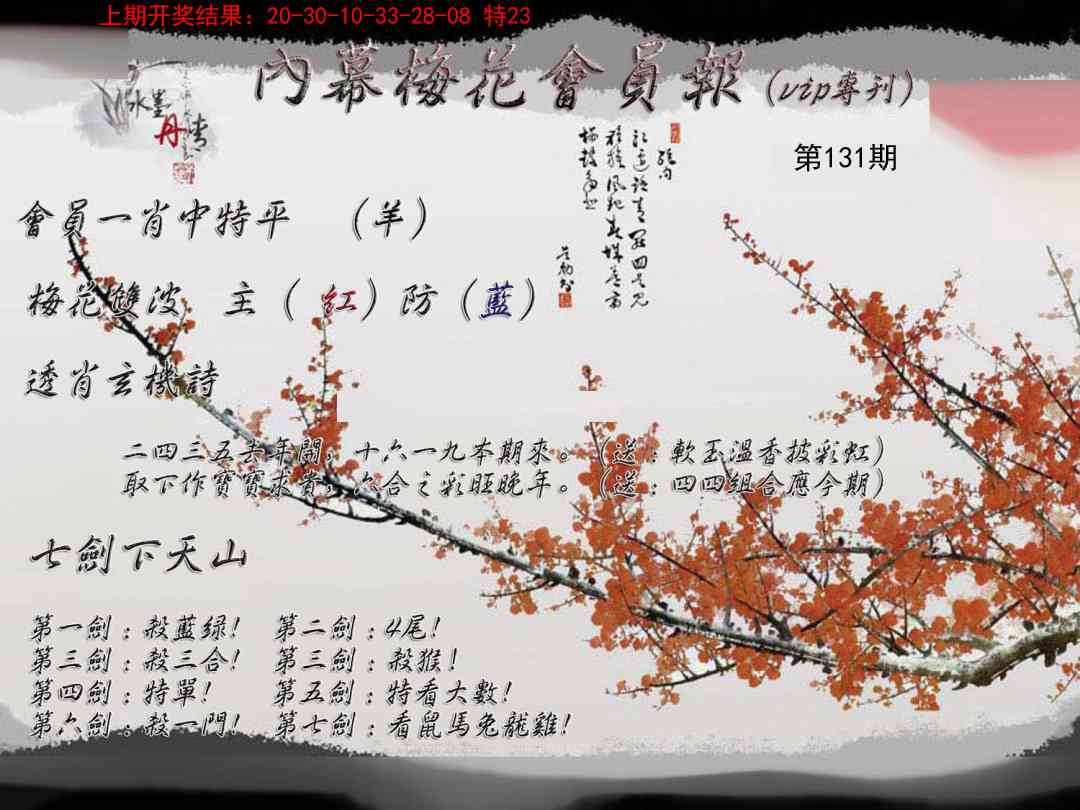 上期开奖结果：20-30-10-33-28-08 特23
內幕梅花會員報(vip專刊)
水墨
丹青
第131期
會員一肖中特平 （羊）
梅花雙波 主（紅）防（藍）
透肖玄機詩
二四三五去年開，十六一九本期來。（送：軟玉溫香披彩虹）
取下作寶寶求貴，六合之彩旺晚年。（送：四四組合應今期）
七劍下天山
第一劍：殺藍绿！ 第二劍：4尾！
第三劍：殺三合！ 第三劍：殺猴！
第四劍：特單！ 第五劍：特看大數！
第六劍：殺一門！ 第七劍：看鼠馬兔龍雞！